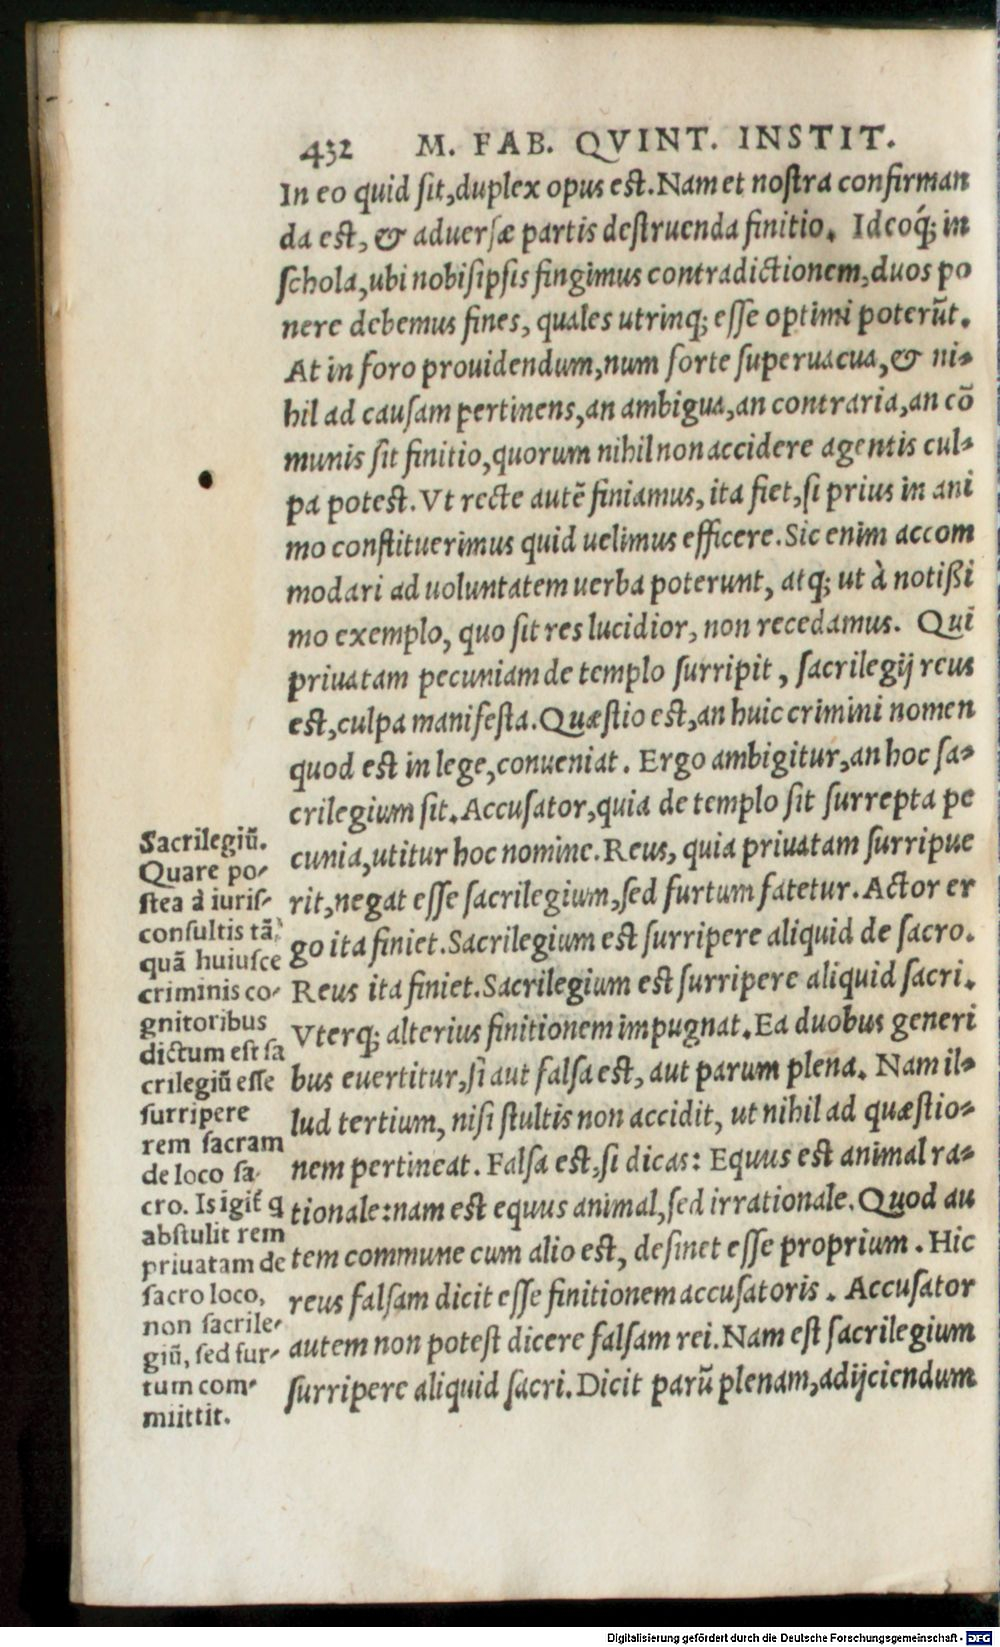 432 M. FAB. QVINT. INSTIT.
In eo quid ſit, duplex opus eſt. Nam et noſtra confirman
da est, & aduerſæ partis deſtruenda finitio. Ideoq́; in
ſchola, ubi nobiſipſis fingimus contradictionem, duos po
nere debemus fines, quales utrinq; eſſe optimi poterũt.
At in foro prouidendum, num forte ſuperuacua, & ni-
hil ad cauſam pertinens, an ambigua, an contraria, an cō
munis ſit finitio, quorum nihil non accidere agentis cul-
pa poteſt. Vt recte autẽ finiamus, ita fiet, ſi prius in ani
mo conſtituerimus quid uelimus efficere. Sic enim accom
modari ad uoluntatem uerba poterunt, atq; ut à notißi
mo exemplo, quo ſit res lucidior, non recedamus. Qui
priuatam pecuniam de templo ſurripit, ſacrilegij reus
eſt, culpa manifeſta. Quæſtio eſt, an huic crimini nomen
quod eſt in lege, conueniat. Ergo ambigitur, an hoc ſa-
crilegium ſit. Accuſator, quia de templo ſit ſurrepta pe
cunia, utitur hoc nomine. Reus, quia priuatam ſurripue
rit, negat eſſe ſacrilegium, ſed furtum fatetur. Actor er
go ita finiet. Sacrilegium eſt ſurripere aliquid de ſacro.
Reus ita finiet. Sacrilegium eſt ſurripere aliquid ſacri.
Vterq; alterius finitionem impugnat. Ea duobus generi
bus euertitur, ſi aut falſa eſt, aut parum plena. Nam il-
lud tertium, niſi ſtultis non accidit, ut nihil ad quæſtio-
nem pertineat. Falſa eſt, ſi dicas: Equus eſt animal ra-
tionale: nam eſt equus animal, ſed irrationale. Quod au
tem commune cum alio eſt, deſinet eſſe proprium. Hic
reus falſam dicit eſſe finitionem accuſatoris. Accuſator
autem non poteſt dicere falſam rei. Nam eſt ſacrilegium
ſurripere aliquid ſacri. Dicit parũ plenam, adijciendum
Sacrilegiũ.
Quare po-
ſtea à iuriſ-
conſultis tã
quã huiuſce
criminis co-
gnitoribus
dictum eſt ſa
crilegiũ eſſe
ſurripere
rem ſacram
de loco ſa-
cro. Is igit̃ q
abſtulit rem
priuatam de
ſacro loco,
non ſacrile-
giũ, ſed fur-
tum com-
miittit.
Digitalisierung gefördert durch die Deutsche Forschungsgemeinschaft - DFG